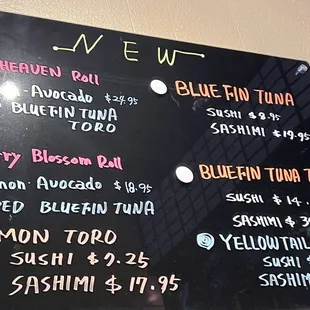 NEW
HEAVEN Roll
Avocado $24.95
BLUEFIN TUNA
TORO
Blossom Roll
Avocado $18.95
BLUEFIN TUNA
TORO
SUSHI $9.25
SASHIMI $17.95
BLUEFIN TUNA
SUSHI $8.95
SASHIMI $19.95
BLUEFIN TUNA
SUSHI $14.
SASHIMI $
YELLOWTAIL
SUSHI
SASHIMI